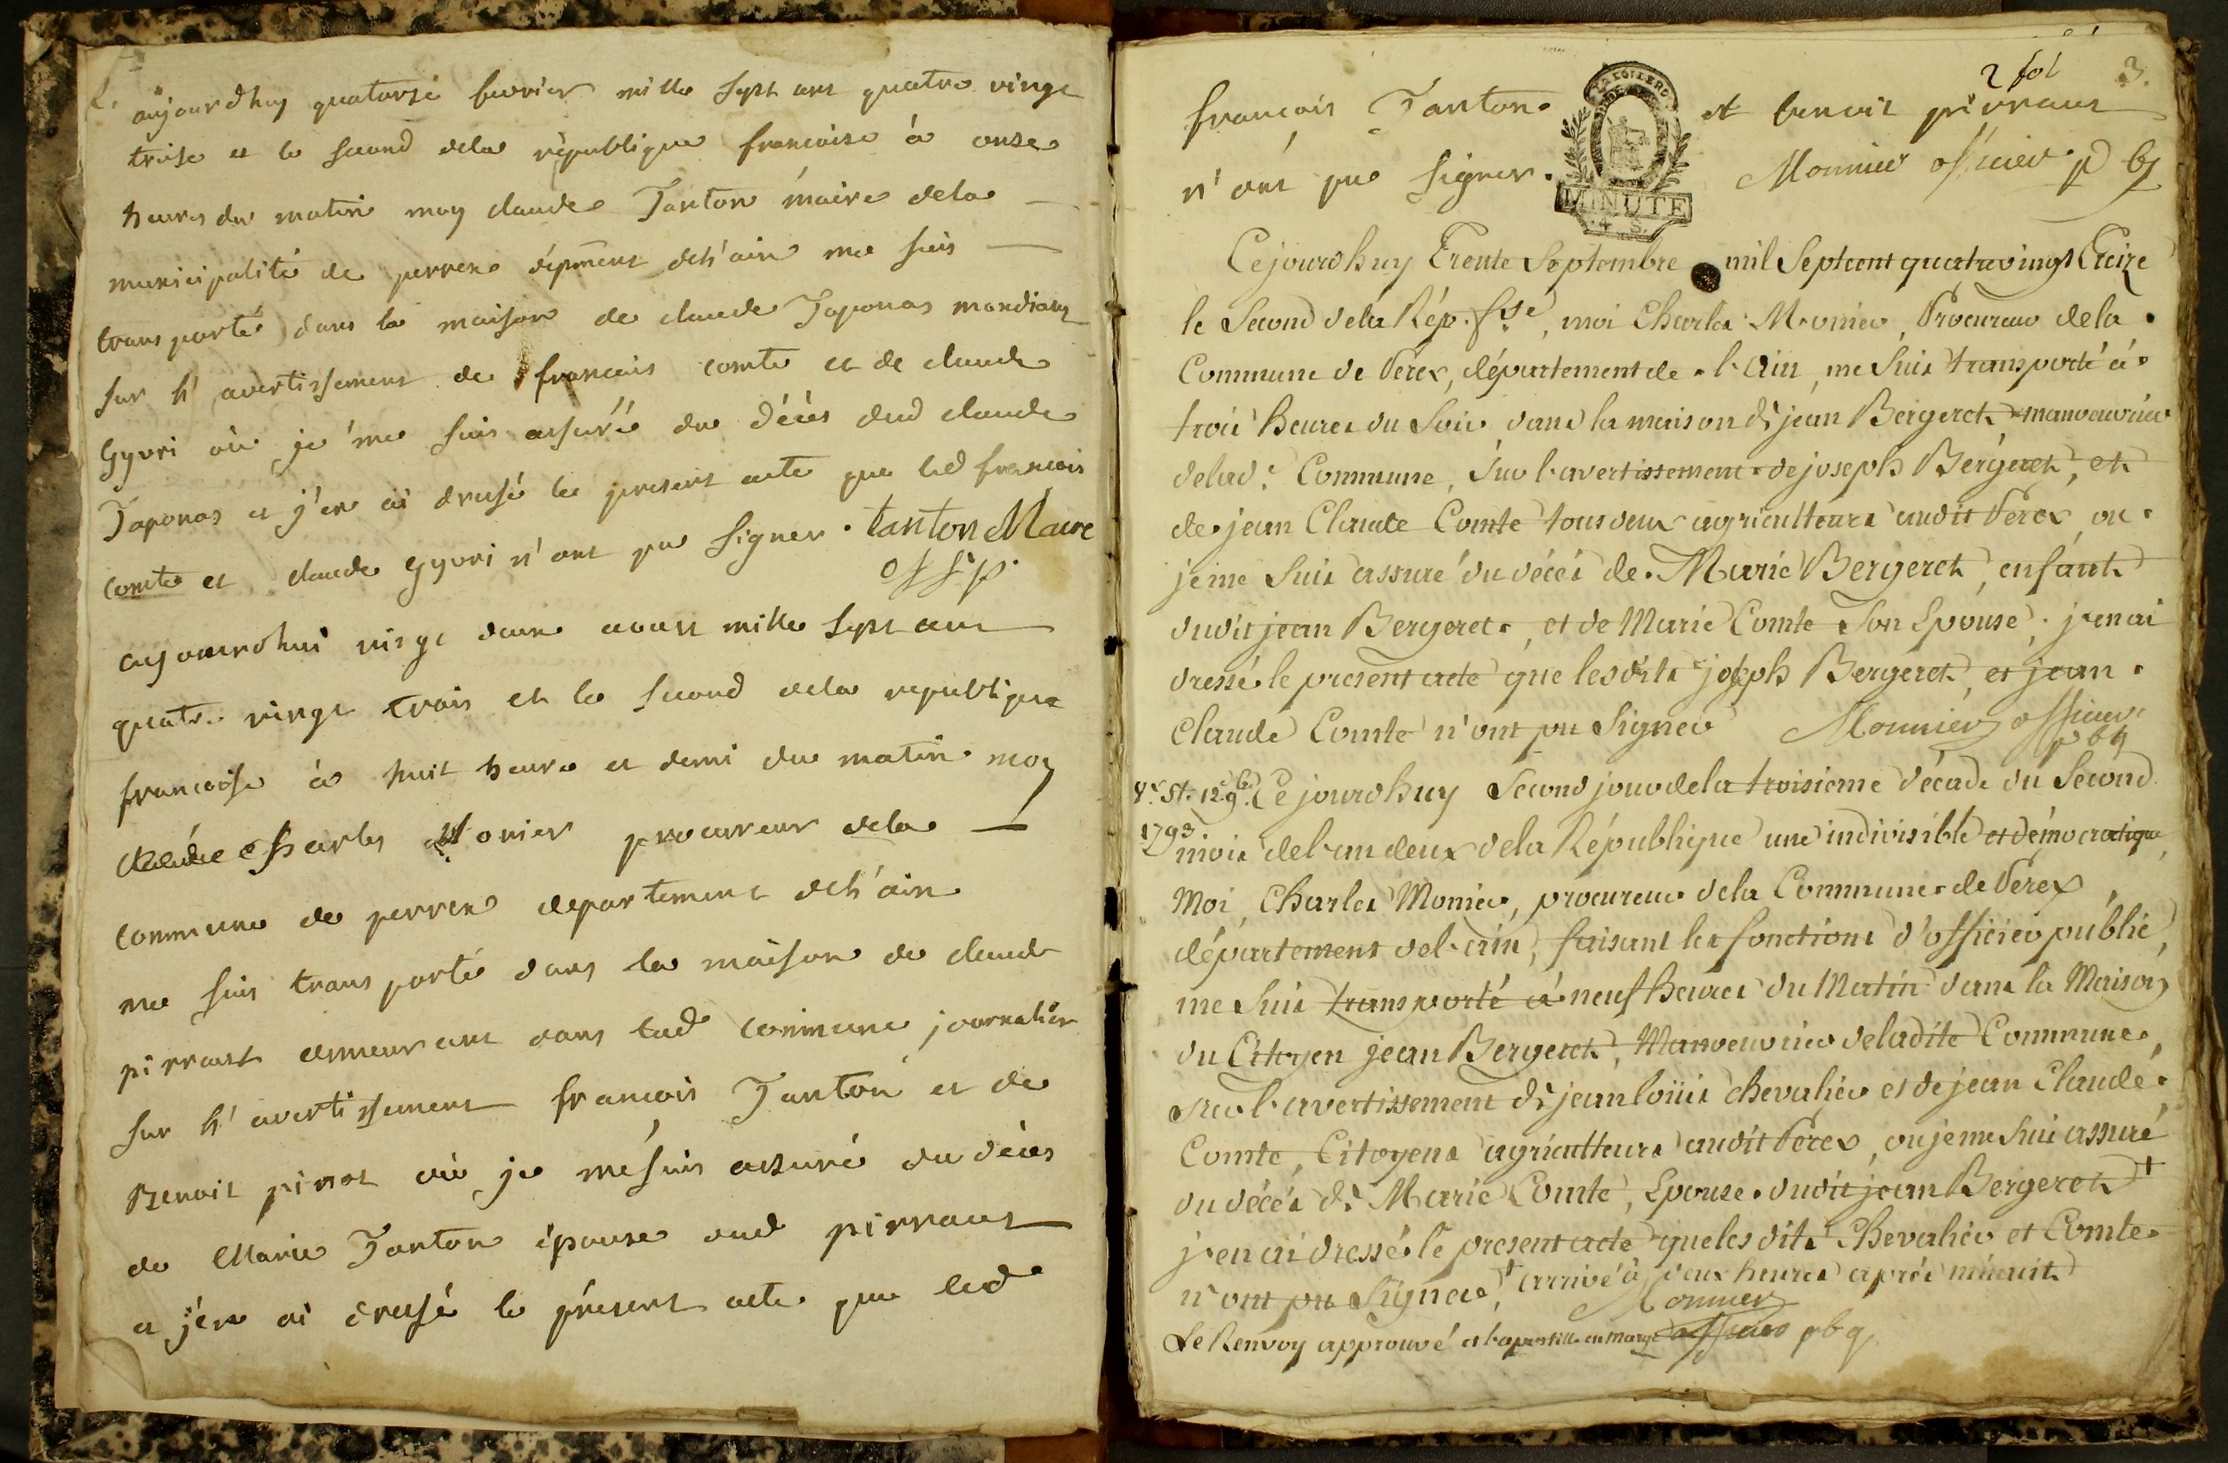 2.
aujourdhuy quatorze fevrier mille sept ans quatre vingt
treise et le second dela république francoise à onze
heures du matin moy claude Tanton maire dela
municipalité de perrex départment deh'ain me suis
transporté dans la maison de claude Taponas mandiant
sur h'avertissement de francois comte et de claude
Gyvri où je me suis assuré du décès dud claude
Taponas et j'en ai drusé le present acte que led francois
comte et claude Gyvri n'ont pu signer. tanton Maire
off. p.
aujourdhui vingt deux aoust mille sept ans
quatr. vingt trois et le second dela republique
francoise à huit heure et demi du matin moy
Charles Monier procureur dela
commune de perrex departement deh'ain
me suis transporté dans la maison de claude
pirraut demeurant dans lad commune journalier
sur h'avertissement francois Tanton et de
Benoit pirrot où je me suis assuré du décès
de Marie Tanton épouse dud pirraut
et j'en ai drusé le présent acte que led
2 fol 3.
francois Tanton et benoit pirraut
n'ont pu signer. Monnier officier p bq
MINUTE
4 S.
Cejourdhuy Trente Septembre mil Septcent quatrevingt Treize
le Second dela Rép. fse, moi Charles Monier, Procureur dela
Commune de Pérex, département de l'Ain, me Suis transporté à
trois heures du Soir dans la maison de jean Bergeret manoeuvrier
delad.e Commune, Sur l'avertissement de joseph Bergéret, et
de jean Claude Comte tous deux agriculteurs audit Pérex ou
je me Suis assuré du décés de Marie Bergeret, enfant
dudit jean Bergeret, et de Marie Comte Son Epouse, j'en ai
dressé le present acte que lesdits joseph Bergeret, et jean
Claude Comte n'ont pu Signer Monnier officier
p bq
V. St. 12 9b. Cejourdhuy Second jour dela troisieme décade du Second
1793. mois del'an deux dela République une indivisible et démocratique,
Moi, Charles Monier, procureur dela Commune de Perex,
département del'ain, faisant les fonctions d'officier public,
me Suis transporté à neuf heures du Matin dans la Maison
du Citoyen jean Bergeret, Manoeuvrier deladite Commune,
Sur l'avertissement de jean loüis chevalier et de jean Claude
Comte, Citoyens agriculteurs audit Perex, ou je me Suis assuré
du décés de Marie Comte, Epouse dudit jean Bergeret †
j'en ai dressé le present acte que lesdits Chevalier et Comte
n'ont pu Signer, † arrivé à deux heures après minuit
Monnier
Le Renvoy approuvé et l'apostille en marge officier p b q